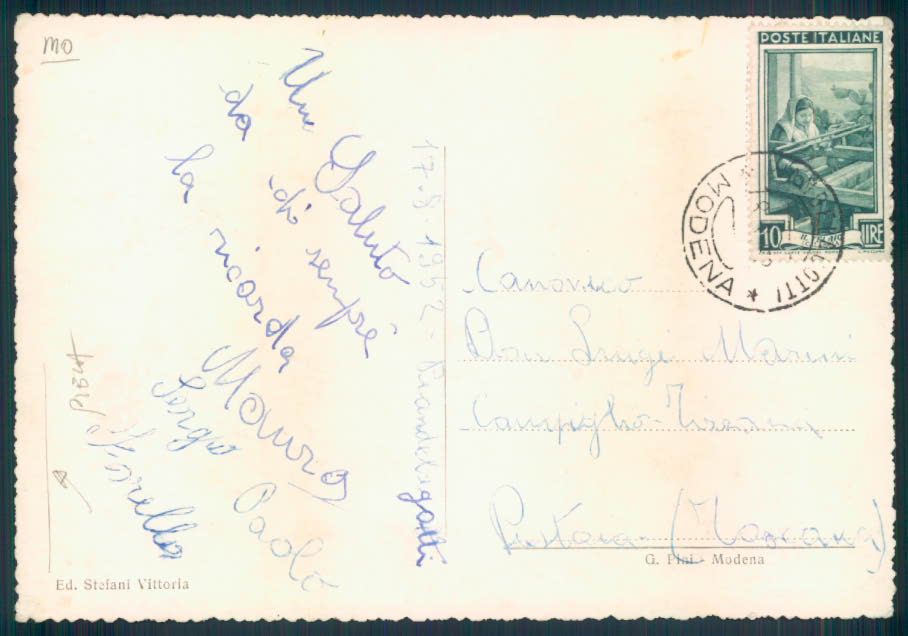 MO
POSTE ITALIANE
10 LIRE
MODENA *
Un Saluto
da di sempre
la ricorda
Mauro
Sergio
Paolo
Fiorella
17.8.1952 - Piandelagotti
Canonico
Don Luigi Marini
Campiglio-Tizzana
Pistoia - (Toscana)
G. Pini - Modena
Ed. Stefani Vittoria